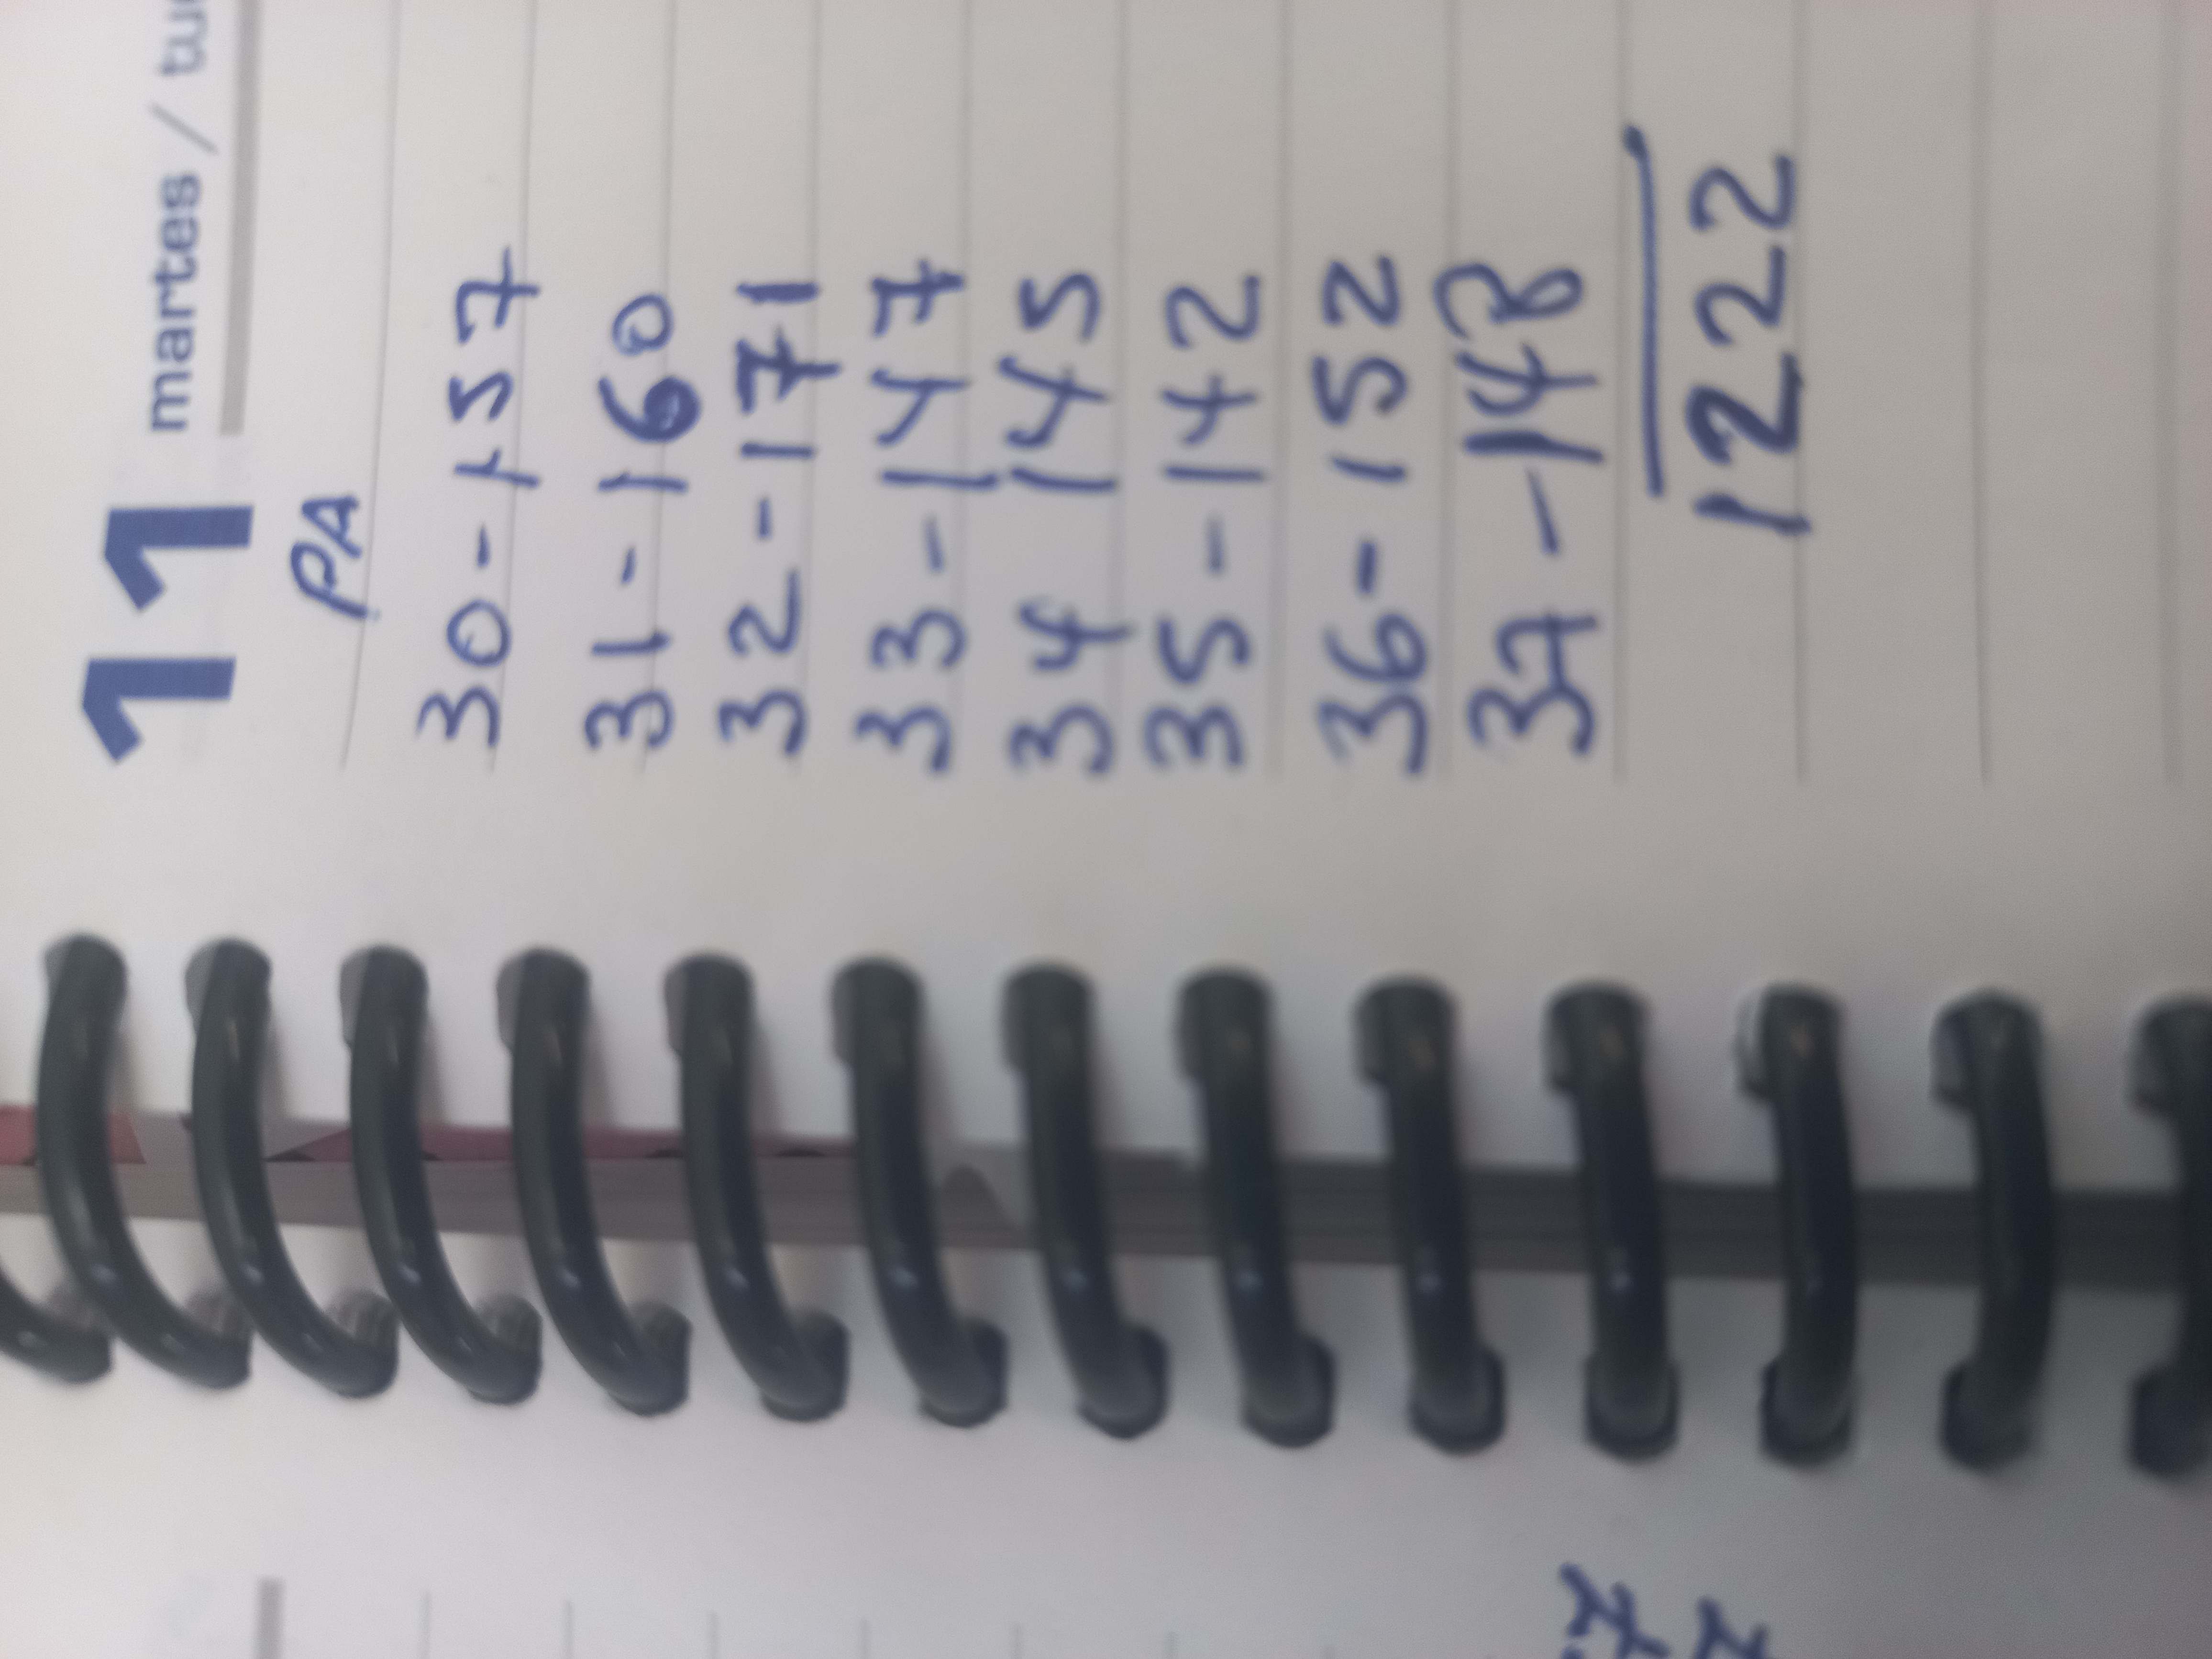 11 martes / tu
PA
30 - 157
31 - 160
32 - 171
33 - 147
34 145
35 - 142
36 - 152
37 - 148
1222